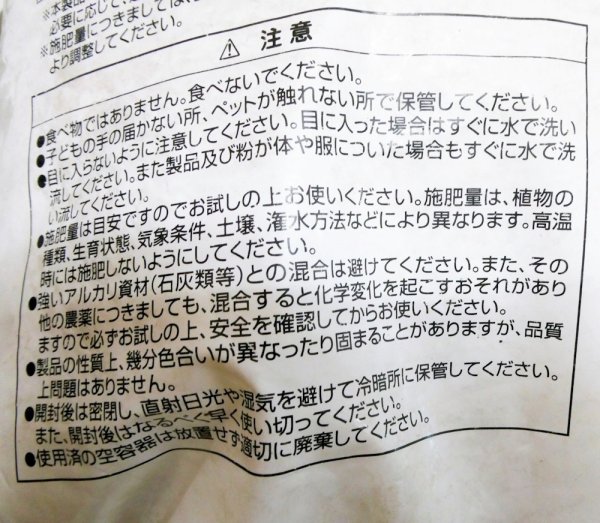 ※本製品
必要に応じて、
※施肥量につきましては、
より調整してください。
⚠ 注意
●食べ物ではありません。食べないでください。
●子どもの手の届かない所、ペットが触れない所で保管してください。
●目に入らないように注意してください。目に入った場合はすぐに水で洗い
流してください。また製品及び粉が体や服についた場合もすぐに水で洗
い流してください。
●施肥量は目安ですのでお試しの上お使いください。施肥量は、植物の
種類、生育状態、気象条件、土壌、潅水方法などにより異なります。高温
時には施肥しないようにしてください。
●強いアルカリ資材(石灰類等)との混合は避けてください。また、その
他の農薬につきましても、混合すると化学変化を起こすおそれがあり
ますので必ずお試しの上、安全を確認してからお使いください。
●製品の性質上、幾分色合いが異なったり固まることがありますが、品質
上問題はありません。
●開封後は密閉し、直射日光や湿気を避けて冷暗所に保管してください。
また、開封後はなるべく早く使い切ってください。
●使用済の空容器は放置せず適切に廃棄してください。